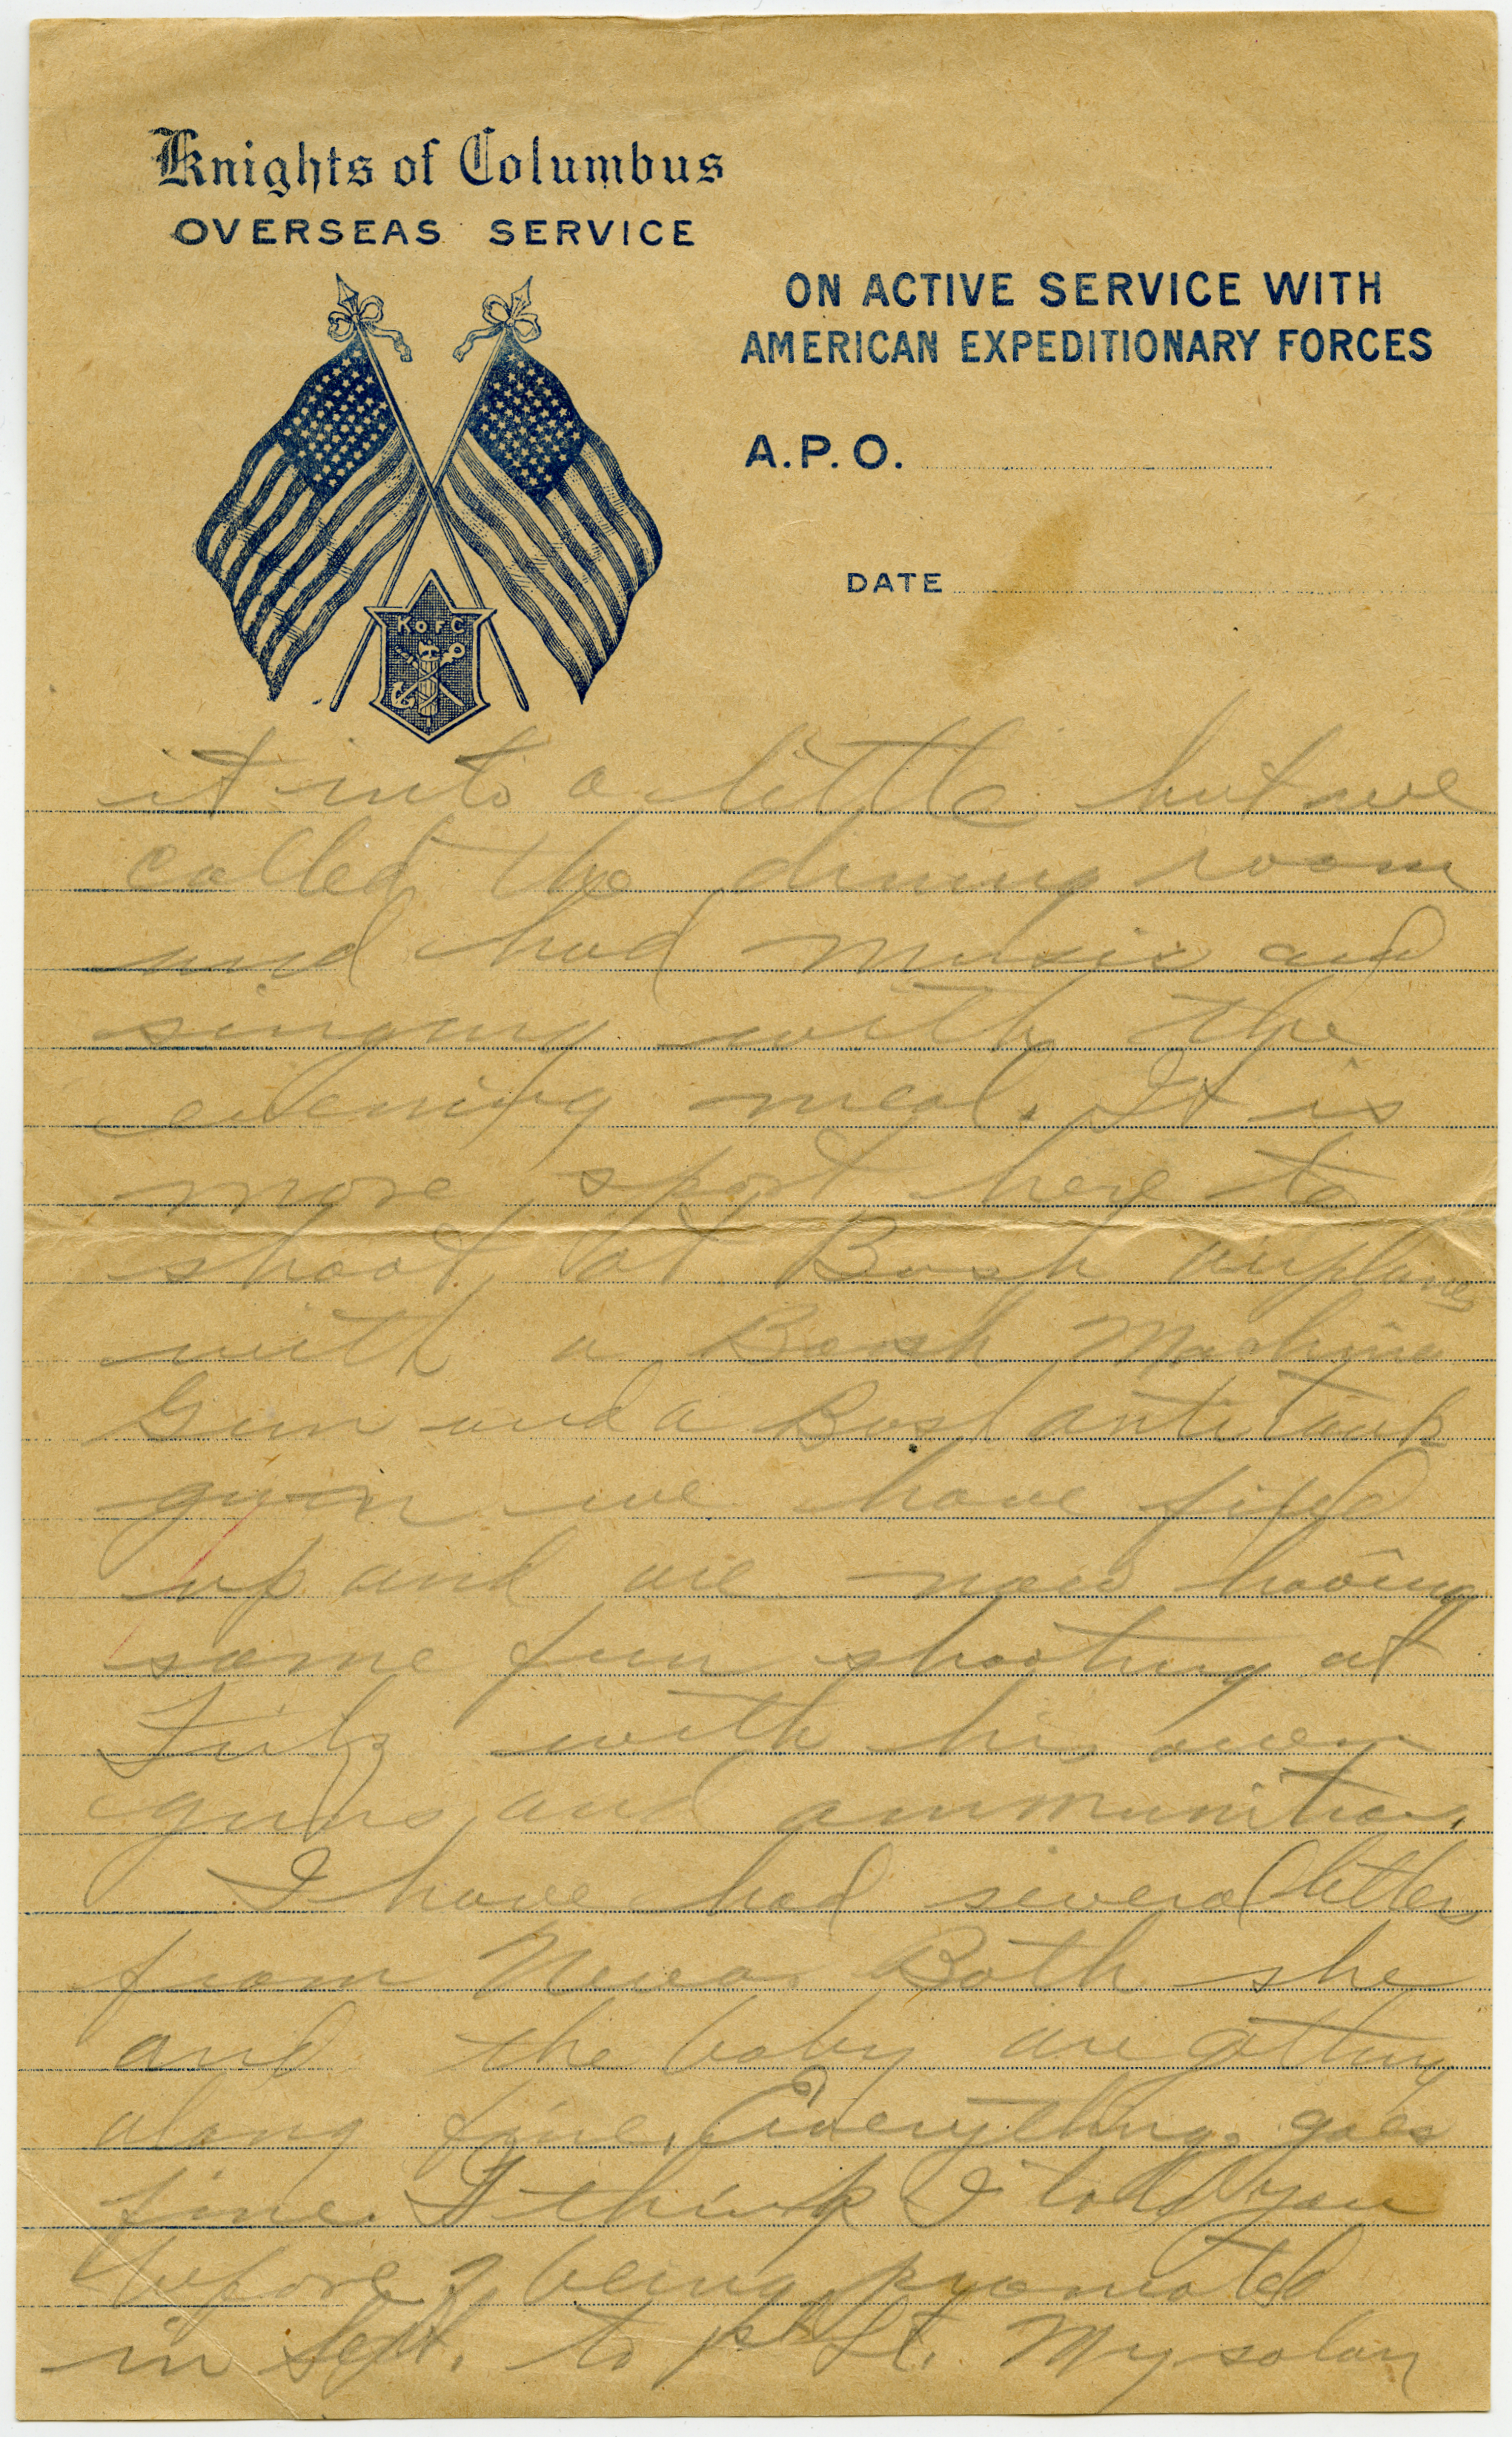 Knights of Columbus
OVERSEAS SERVICE
ON ACTIVE SERVICE WITH
AMERICAN EXPEDITIONARY FORCES
A.P.O.
DATE
K of C
it into a little hut we
called the dining room
and had music and
singing with the
evening meal. It is
more sport here to
shoot at Bosh airplanes
with a Bosh Machine
Gun and a Bosh anti tank
gun we have fixed
up and are now having
some fun shooting at
Fritz with his own
guns and ammunition.
I have had several letters
from Neva. Both she
and the baby are getting
along fine. Everything goes
fine. I think I told you
before of being promoted
in Sept. to 1st Lt. My salary